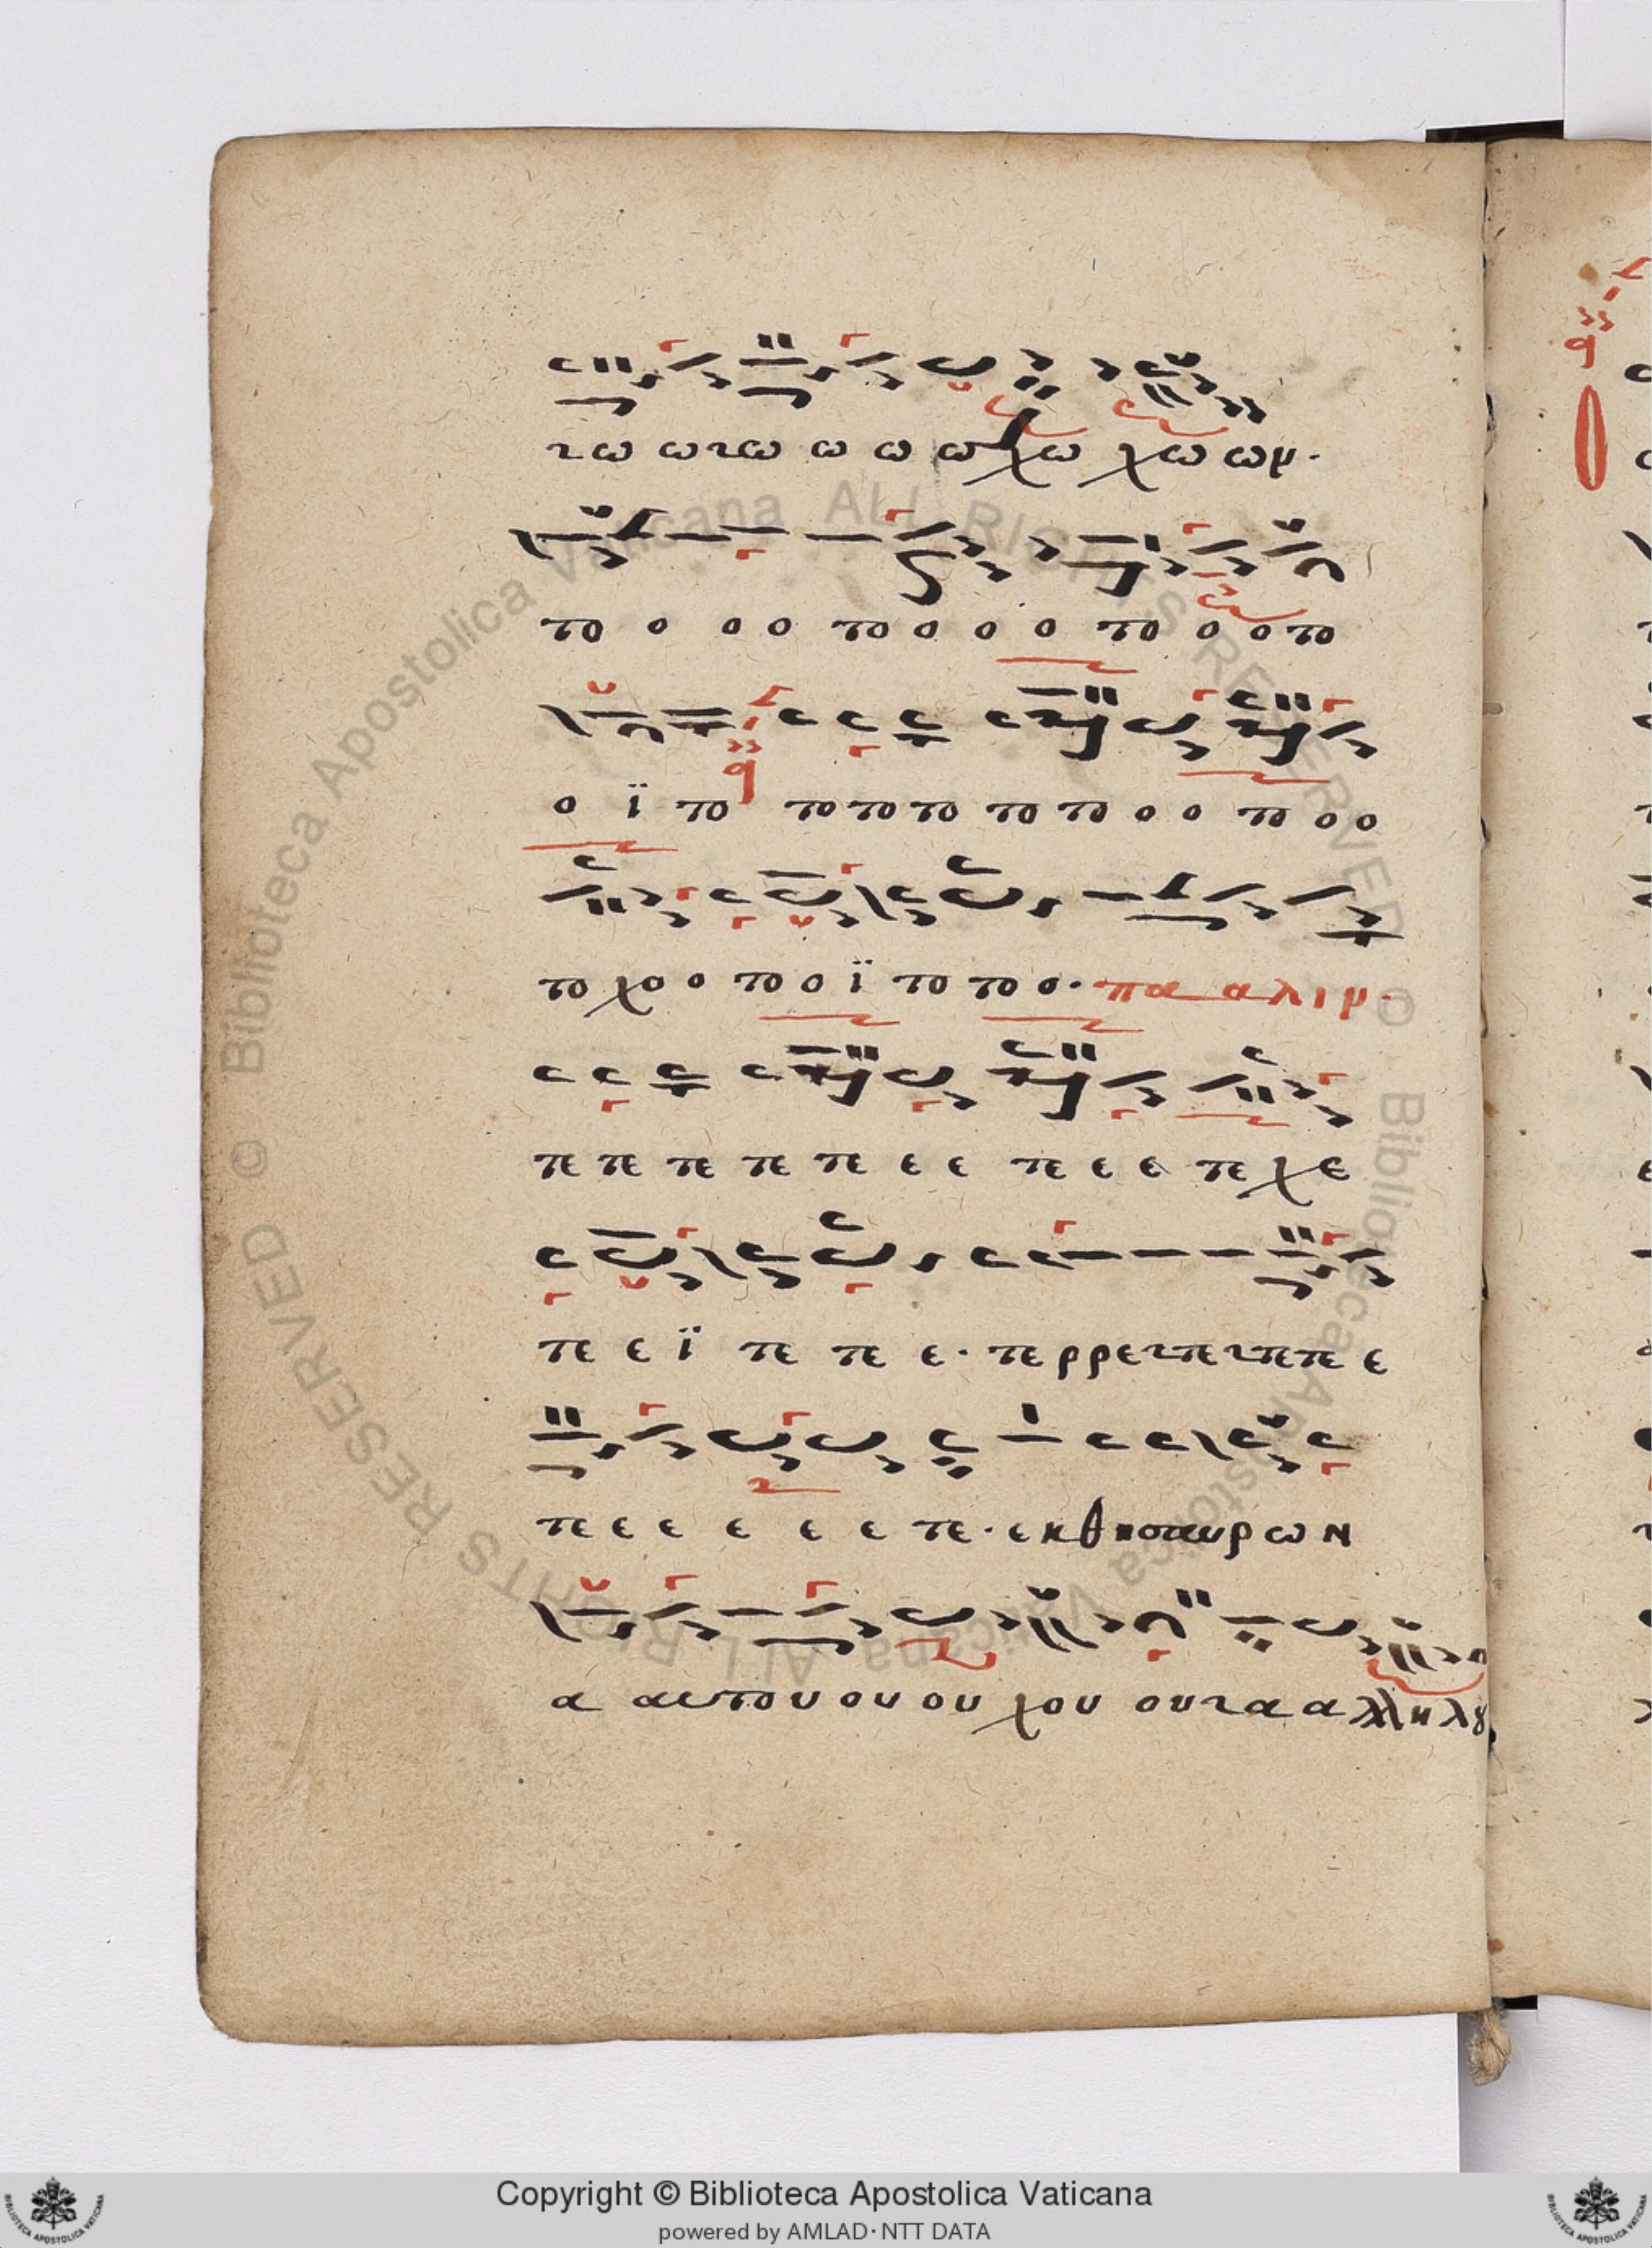 τω ωτω ω ω ωχω χω ωμ.
το ο ο ο το ο ο ο το ο ο το
ο ϊ το το το το το το ο ο το ο ο
το χο ο το ο ϊ το το ο. πα α λι μ.
πε πε πε πε πε ε ε πε ε ε πε χε
πε ε ϊ πε πε ε. πε ρρετπετπεπε ε
πε ε ε ε ε ε πε. εκθησαυρων
α αυτου ου ου χου ουτα α λληλȣ
Copyright © Biblioteca Apostolica Vaticana
powered by AMLAD·NTT DATA